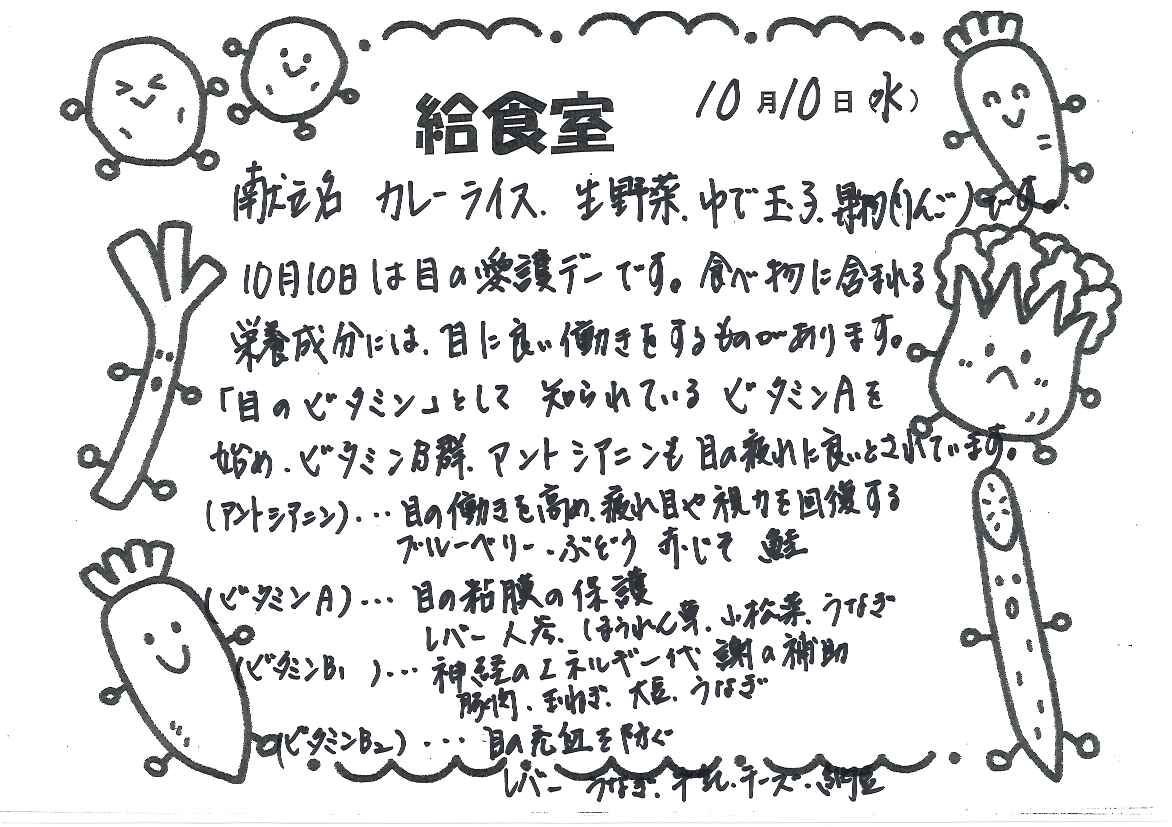 給食室
10月10日(水)
献立名 カレーライス、生野菜、ゆで玉子、果物(りんご)です。
10月10日は目の愛護デーです。食べ物に含まれる
栄養成分には、目に良い働きをするものがあります。
「目のビタミン」として 知られている ビタミンAを
始め、ビタミンB群、アントシアニンも目の疲れに良いとされています。
(アントシアニン)・・・目の働きを高め、疲れ目や視力を回復する
ブルーベリー、ぶどう 赤じそ 鮭
(ビタミンA)・・・目の粘膜の保護
レバー 人参、ほうれん草、小松菜、うなぎ
(ビタミンB1 )・・・神経のエネルギー代謝の補助
豚肉、玉ねぎ、大豆、うなぎ
(ビタミンB2)・・・目の充血を防ぐ
レバー うなぎ、牛乳、チーズ、納豆